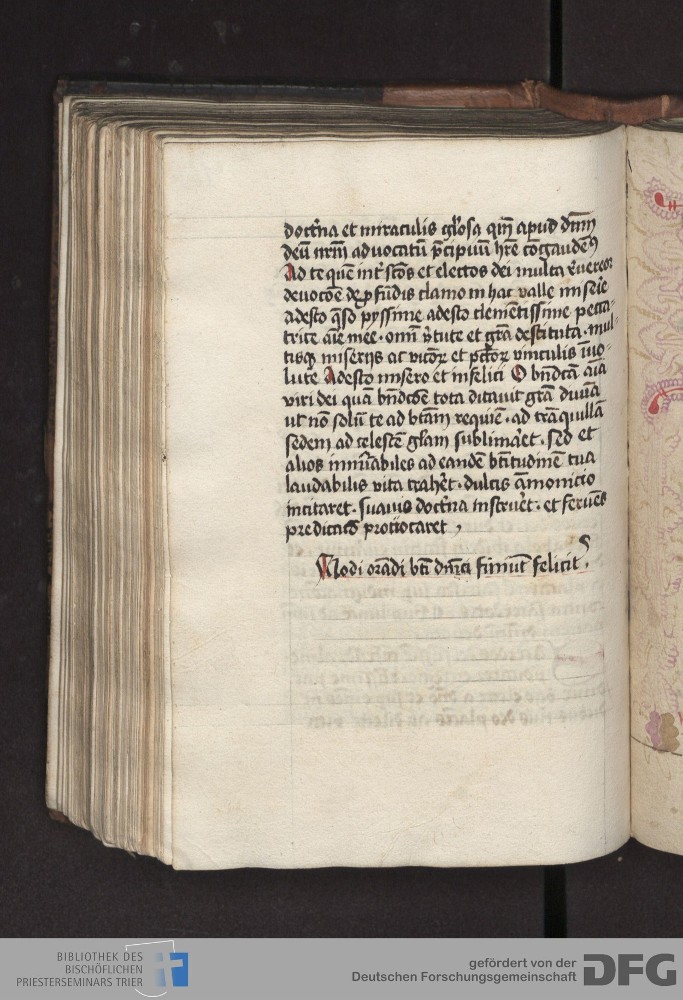 doctͥna et miraculis gl'osa qm̄ apud dnm̄
deū nrm̄ aduocatū p̄cipuū hr̄e cōgaudemꝰ
Ad te quē int' sc̄os et electos dei multa
deuocōe de ꝓfūdis clamo in hac valle miserie
adesto q̄so pyssime adesto clemētissime pecca-
trice aīe mee · omī v̄tute et gr̄a destituta · mul-
tisqꝫ miserijs ac vicioꝝ et pctōꝝ vinculis īuo-
lute Adesto misero et infelici O bn̄dcā aīa
viri dei quā bn̄dcōe tota ditauit gr̄a diuīa
vt nō solū te ad btām requiē · ad trāquillā
sedem ad celestē gl'am sublimar̄et · sed et
alios innūabiles ad eandē btītudinē tua
laudabilis vita trah'et · dulcis āmonicio
incitaret · suauis doct'na instru'et · et feruēs
predicacō prouocaret ,
Modi orādi bti dn̄ici finiūt felicit'
BIBLIOTHEK DES
BISCHÖFLICHEN
PRIESTERSEMINARS TRIER
gefördert von der
Deutschen Forschungsgemeinschaft DFG